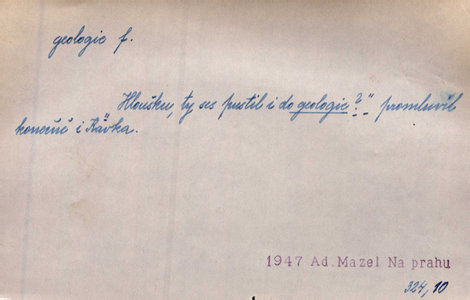 geologie f.
Hloušku, ty ses pustil i do geologie?" promluvil
konečně i Kávka.
1947 Ad. Mazel Na prahu
324,10